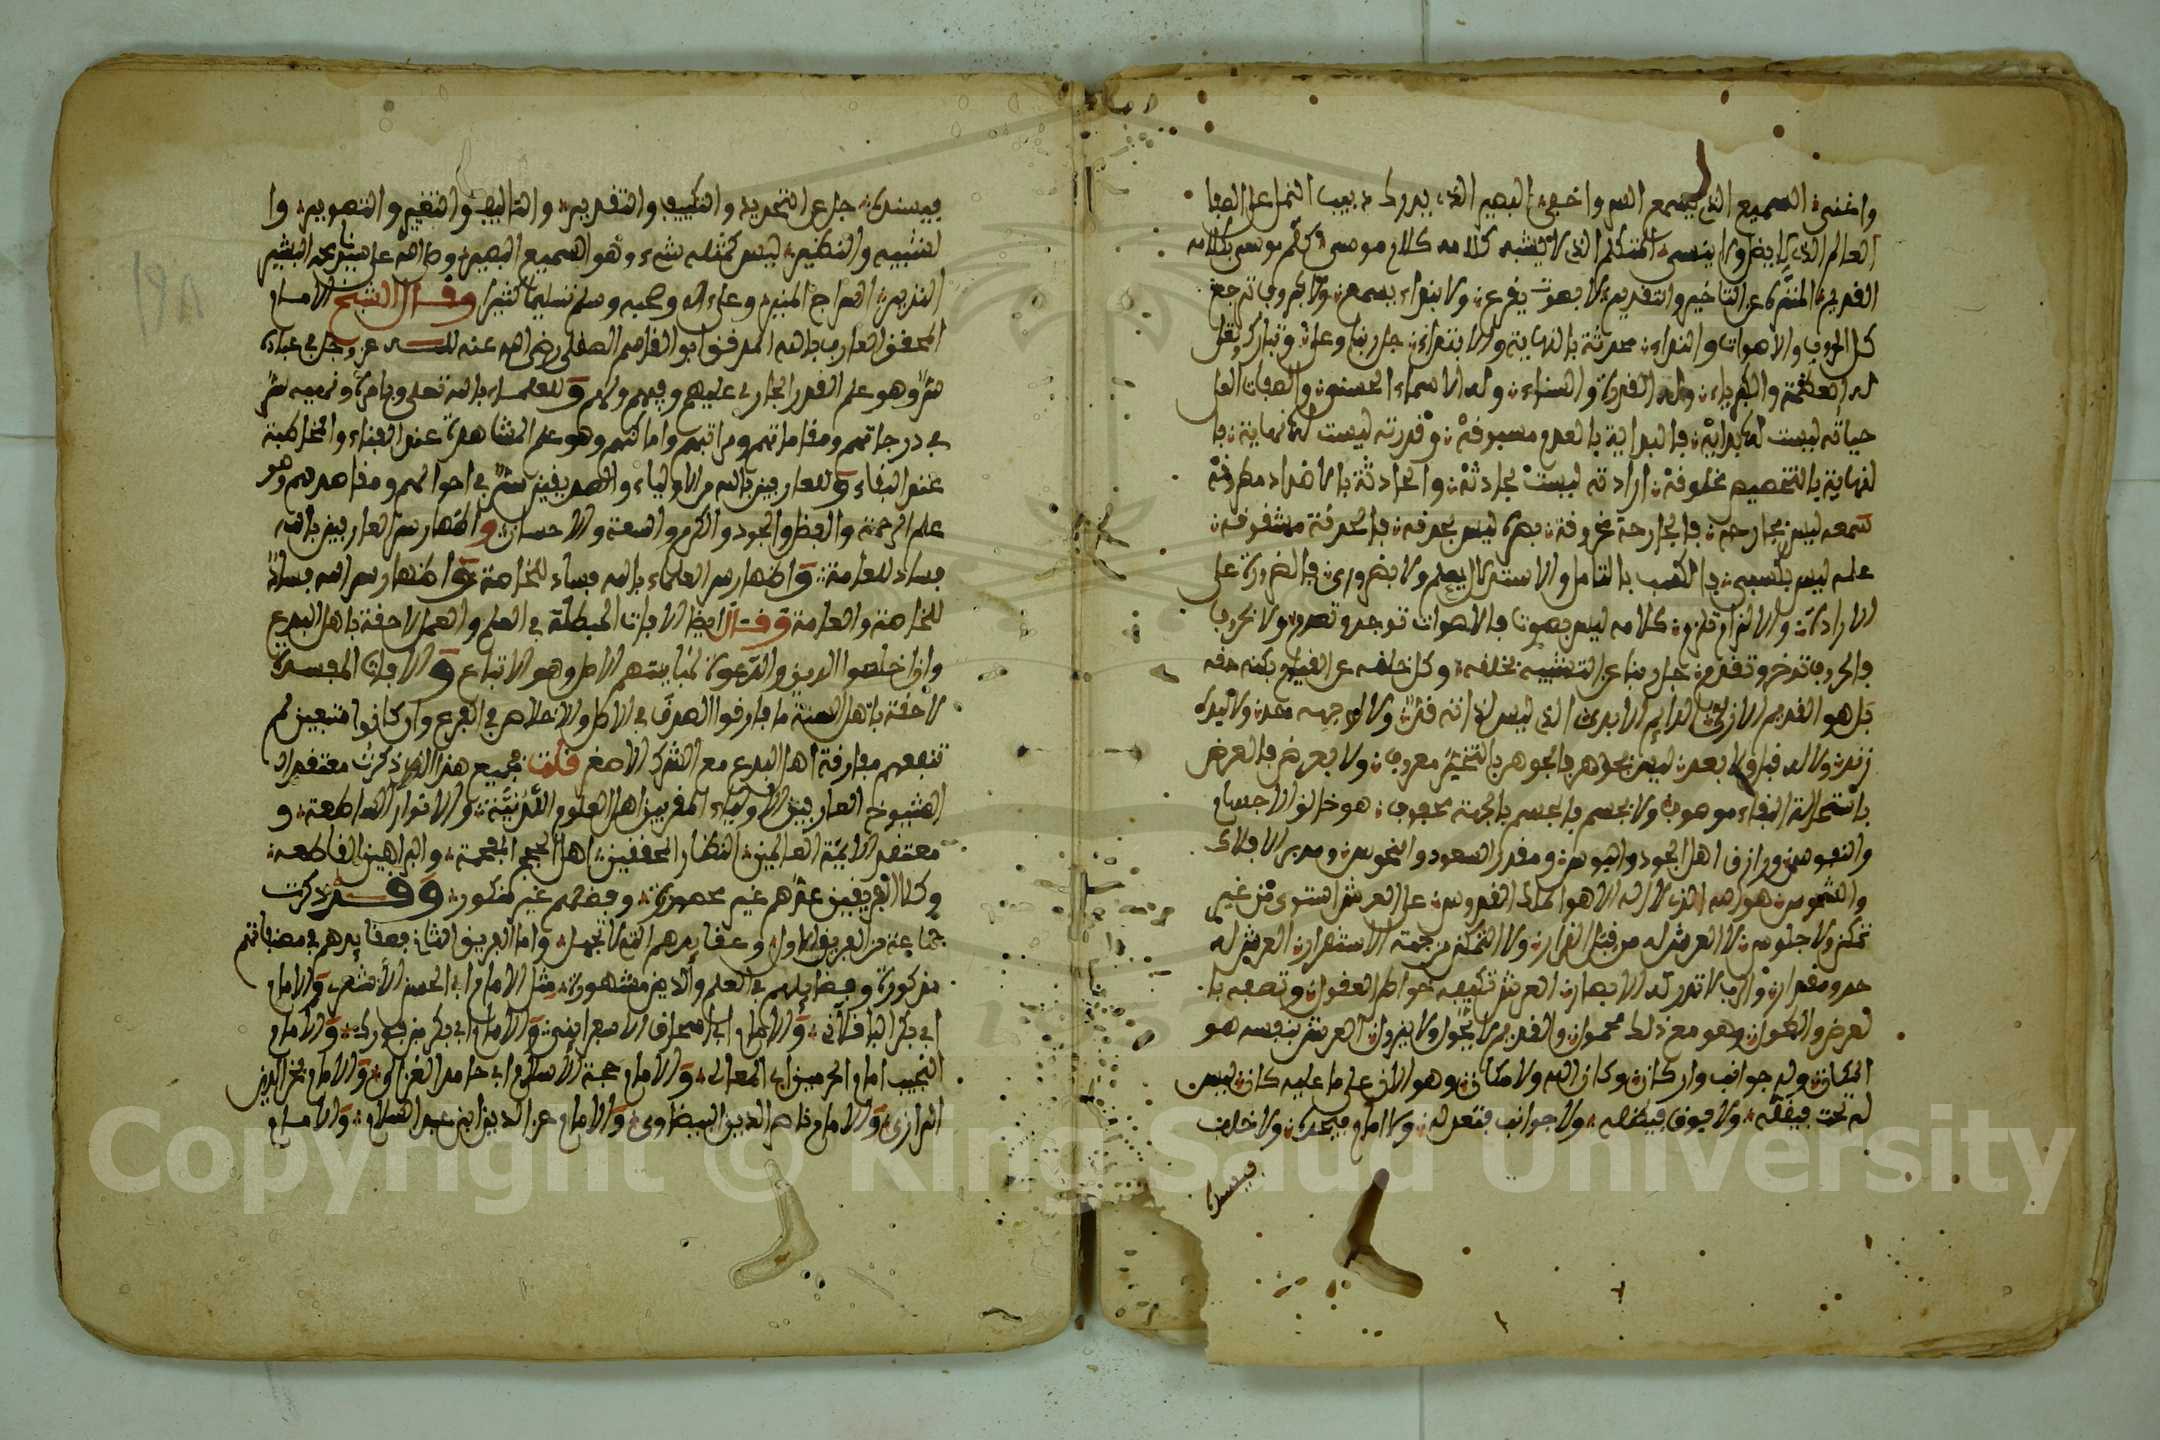 واخفى السميع الذي يسمع السر واخفى البصير الذي يرى دبيب النمل على الصفا
العالم الذي لا يضل ولا ينسى المتكلم الذي لا يشبه كلامه كلام موسى كلم موسى بكلامه
القديم المنزه عن التاخير والتقديم لا بصوت يقرع ولا بنداء يسمع ولا بحروف ترجع
كل الحروف والاصوات والنداء محدثة بالنهاية والابتداء جل ربنا وعلا وتبارك وتعلى
له العظمة والكبرياء وله القدرة والسناء وله الاسماء الحسنى والصفات العلا
حياته ليست لها بداية فالبداية بالعدم مسبوقة وقدرته ليست لها نهاية فا
لنهاية بالتخصيص مخلوقة ارادته ليست بحادثة والحادثة بالاضداد مطروقة
سمعه ليس بجارحة فالجارحة مخروقة بصره ليس بحدقة فالحدقة مشقوقة
علمه ليس بكسبي فالكسب بالتامل والاستدلال يعلم ولا بضروري فالضرورة على
الارادة والالزام تلزم كلامه ليس بصوت فالاصوات توجد وتعدم ولا بحروف
فالحروف تؤخر وتقدم جل ربنا عن التشبيه بخلقه وكل خلقه عن القيام بكنه حقه
بل هو القديم الازلي الدايم الابدي الذي ليس لذاته قد ولا لوجهه خد ولا ليده
زند ولا له قبل ولا بعد ليس بجوهر فالجوهر بالتحيز معروف ولا بعرض فالعرض
باستحالة البقاء موصوف ولا بجسم فالجسم بالجهة محفوف هو خالق الاجسام
والنفوس ورازق اهل الجود والبوس ومقدر السعود والنحوس ومدبر الافلاك
والشموس هو الله الذي لا اله الا هو الملك القدوس على العرش استوى من غير
تمكن ولا جلوس لا العرش له من قبل القرار ولا التمكن من جهة الاستقرار العرش له
حد ومقدار والرب لا تدركه الابصار العرش تكيفه خواطر العقول وتصفه با
لعرض والطول وهو مع ذلك محمول والقديم لا يحول ولا يزول العرش بنفسه هو
المكان وله جوانب واركان وكان الله ولا مكان وهو الان على ما عليه كان ليس
له تحت فيقله ولا فوق فيظله ولا جوانب فتعدله ولا امام فيحده ولا خلف
فيسنده
فيسنده جل عن التحديد والتكييف والتقدير والتاليف والتغيير والتصوير وا
لتشبيه والنظير ليس كمثله شيء وهو السميع البصير وصلى الله على سيدنا محمد البشير
النذير السراج المنير وعلى اله وصحبه وسلم تسليما كثيرا وقال الشيخ الامام
المحقق العارف بالله المدقق ابو القاسم الصقلي رضي الله عنه لله عز وجل في عباده
سر وهو علم القدر الجاري عليهم وفيهم ولهم وللعلماء بالله تعلى وبامره ونهيه سر
في درجاتهم ومقاماتهم ومراتبهم واماكنهم وهو علم المشاهدة عند الفناء والمخاطبة
عند البقاء وللعارفين بالله من الاولياء والصديقين سر في احوالهم ومقاصدهم وهو
علم الرحمة والفضل والجود والكرم والسعة والاحسان واظهار سر العارفين بالله
فساد للعامة واظهار سر العلماء بالله فساد للخاصة واظهار سر الله فساد
للخاصة والعامة وقال ايضا الافات المبطلة في العلم والعمل لاحقة باهل البدع
وان اخلصوا الدين والدعوة لمباينتهم الاصل وهو الاتباع والافات المفسدة
لاحقة باهل السنة ما فارقوا الصدق في الاصل والاخلاص في الفرع وان كانوا متبعين لم
تنفعهم مفارقة اهل البدع مع الشرك الاصغر قلت فجميع هذا الذي ذكرت معتقدات
الشيوخ العارفين الاولياء المقربين اهل العلوم اللدنية والانوار الساطعة و
معتقد الائمة العالمين النظار المحققين اهل الحجج المفحمة والبراهين القاطعة
وكلا الفريقين عددهم غير محصور وفضلهم غير منكور وقد ذكرت
جماعة من الفريق الاول وعقايدهم التي لا تجهل واما الفريق الثاني فعقايدهم في مصنفاتهم
مذكورة وفضايلهم في العلم والدين مشهورة مثل الامام ابي الحسن الاشعري والامام
ابي بكر الباقلاني والامام ابي اسحاق الاسفرايني والامام ابي بكر بن فورك والامام
النجيب امام الحرمين ابي المعالي والامام حجة الاسلام ابي حامد الغزالي والامام فخر الدين
الرازي والامام ناصر الدين البيضاوي والامام عز الدين ابن عبد السلام والامام